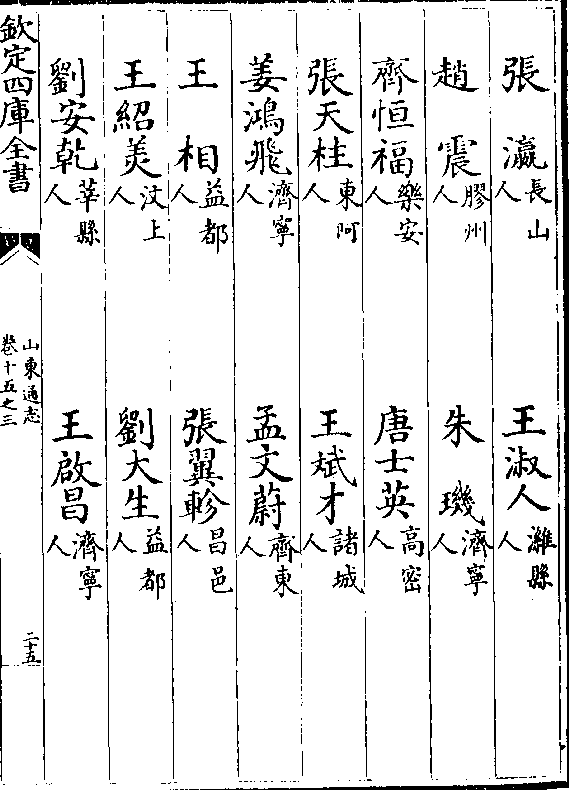 張瀛長山人 王淑人濰縣人
趙震膠州人 朱璣濟寧人
齊恒福樂安人 唐士英高密人
張天柱東阿人 王斌才諸城人
姜鴻飛濟寧人 孟文蔚齊東人
王相益都人 張翼軫昌邑人
王紹羙汶上人 劉大生益都人
劉安乾莘縣人 王啟昌濟寧人
欽定四庫全書 山東通志 卷十五之三 二十五